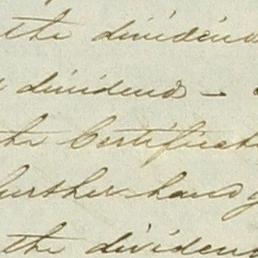 the dividend
dividends —
the Certificate
further hand
the dividend